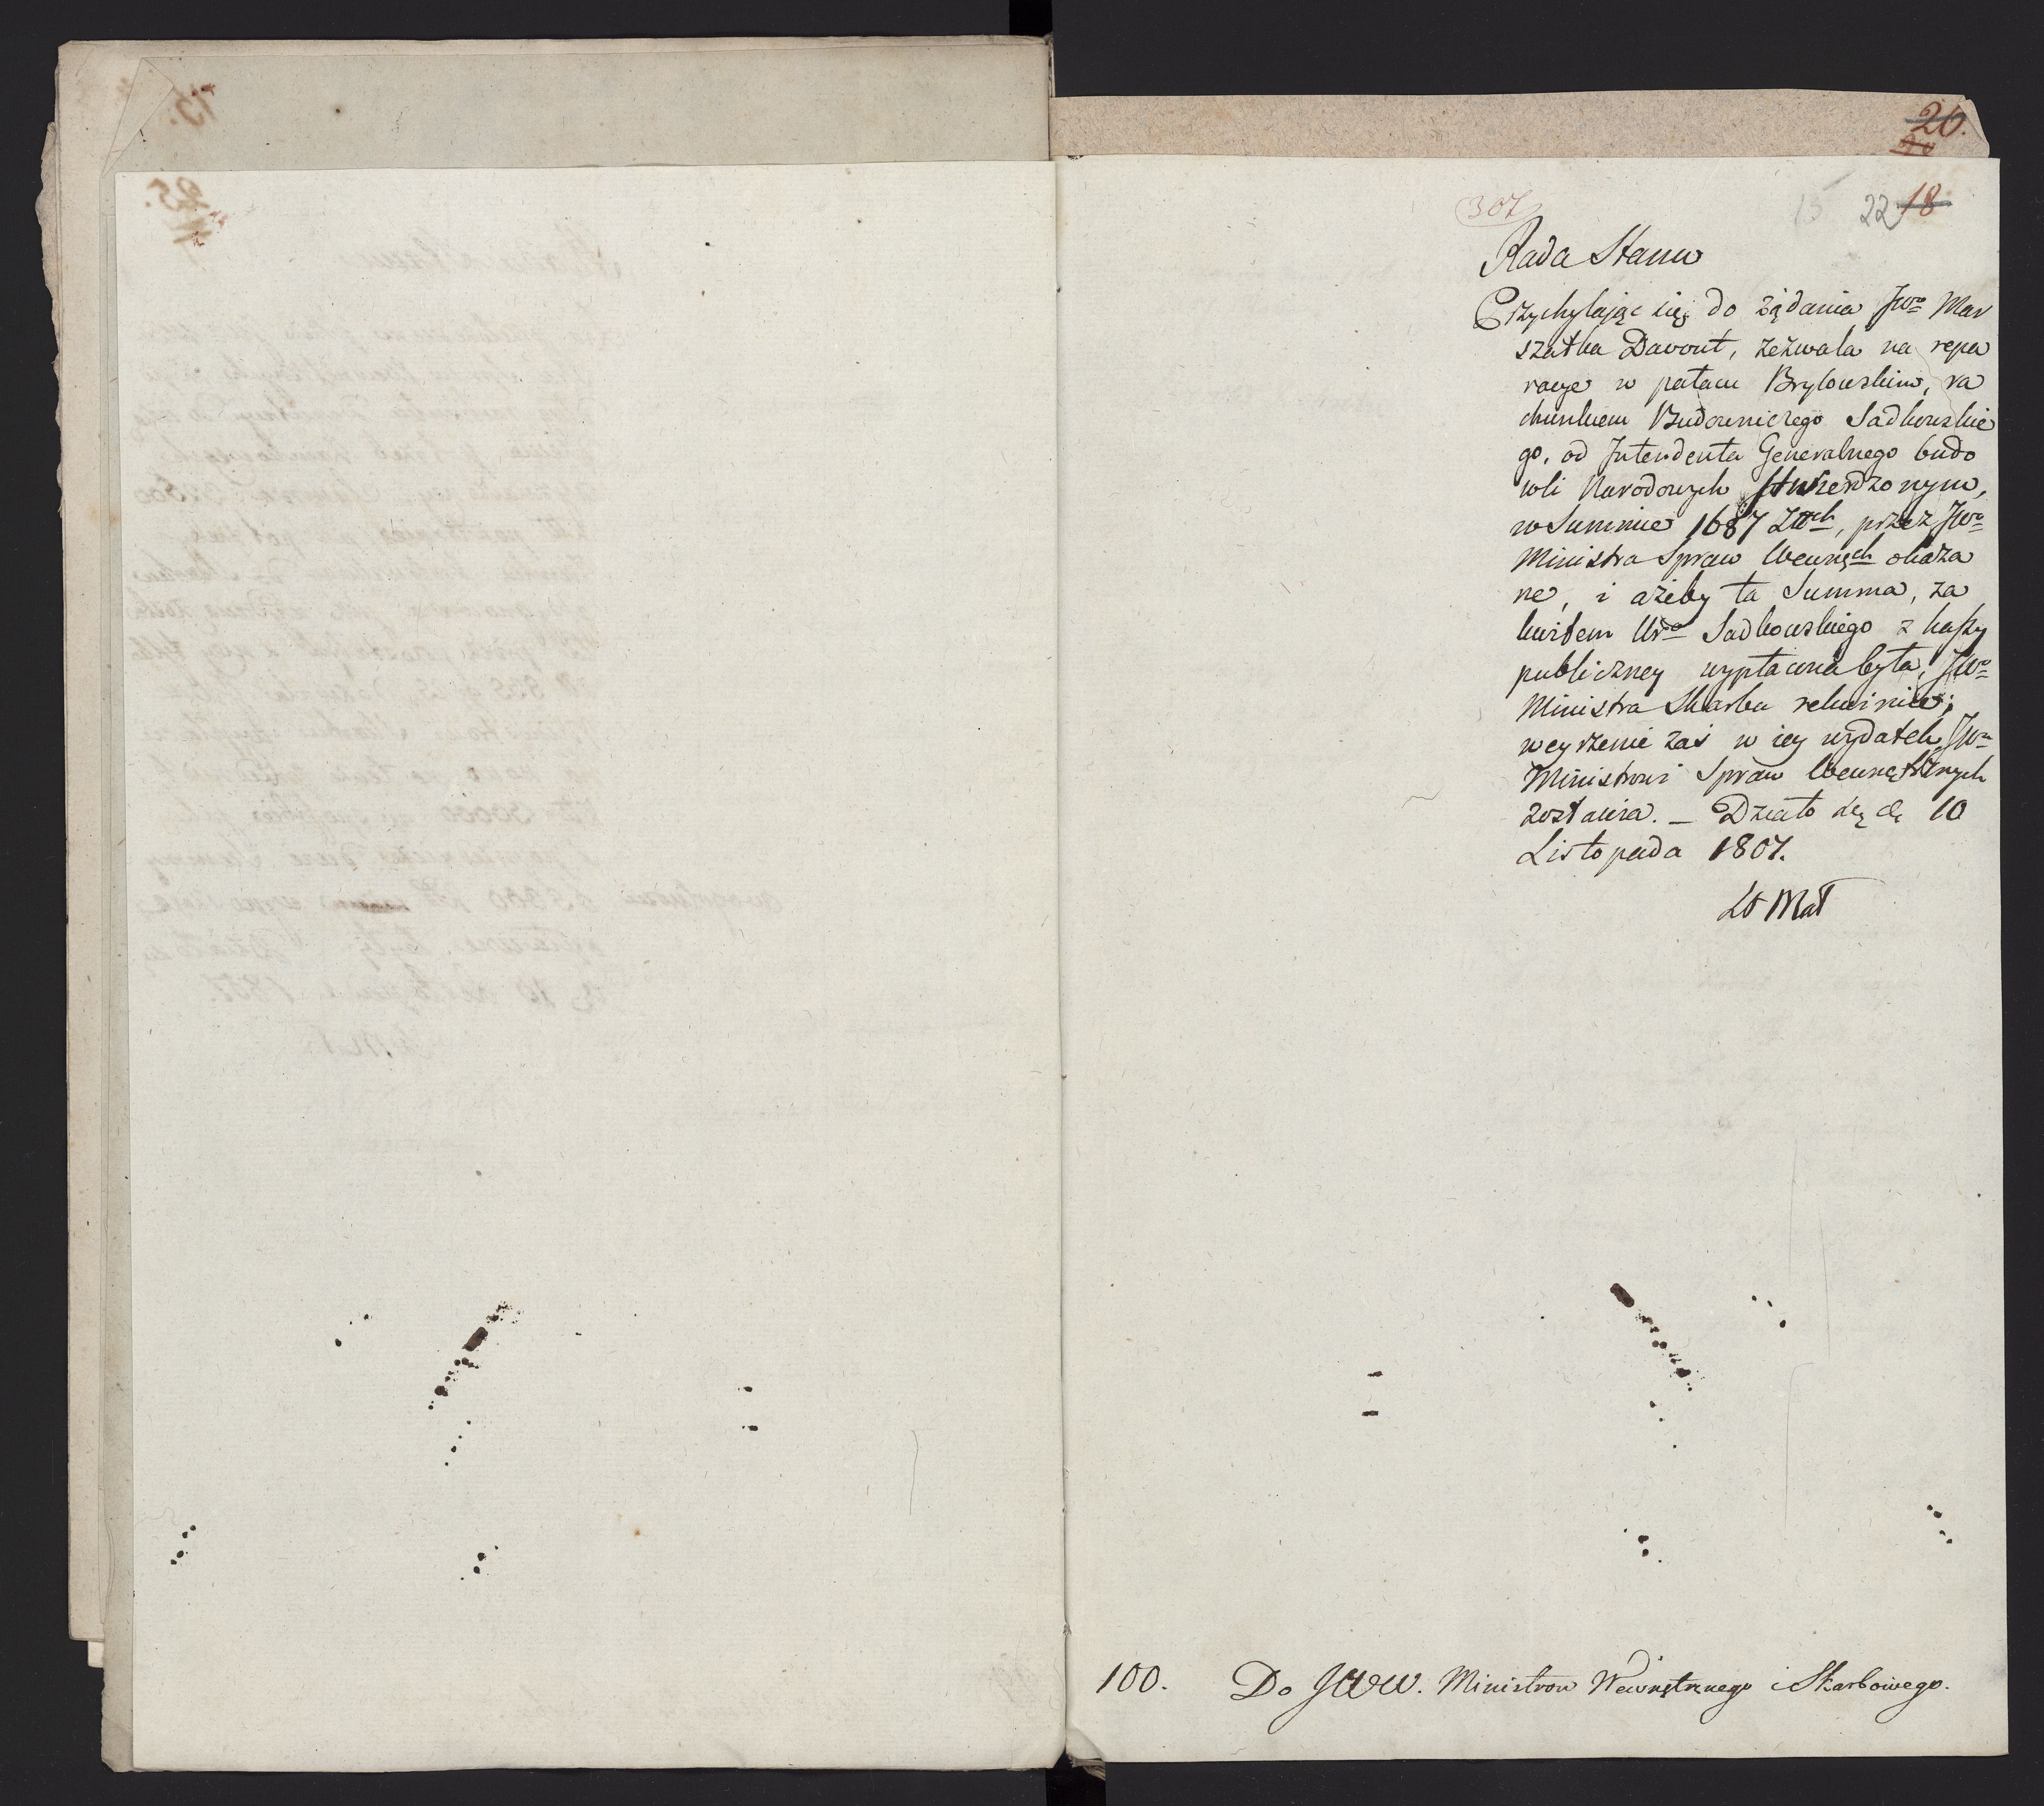 26.
307
15 22 18
Rada Stanu
Przychylając się do żądania JWo Mar
szałka Davout, zezwala na repa
racye w pałacu Brylowskim, ra
chunkiem Budowniczego Sadkowskie
go, od Intendenta Generalnego budo
wli Narodowych stwierdzonym,
w Summie 1687 Złłch, przez JWo
Ministra Spraw Wewnęch okaza
ne, i ażeby ta Summa, za
kwitem Uro Sadkowskiego z kassy
publiczney wypłacona była, JWo
Ministra Skarbu rekwiruie;
weyrzenie zaś w iey wydatek JWu
Ministrowi Spraw Wewnętrznych
zostawia. — Działo się d. 10
Listopada 1807.
St Mał
100. Do JWW. Ministrow Wewnętrznego i Skarbowego.